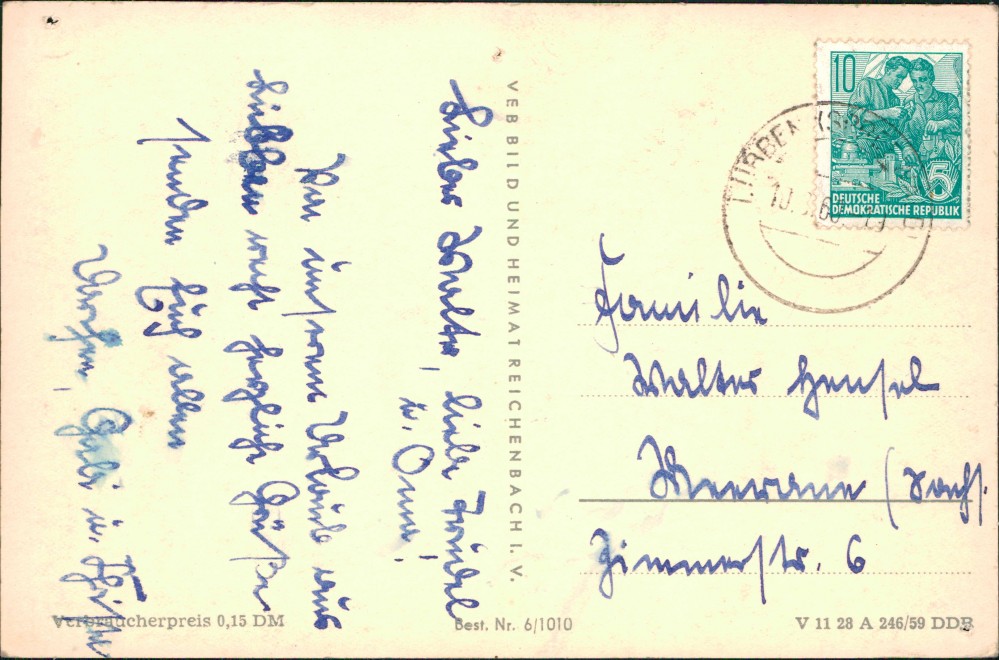 Lieber Walter, liebe Friedel
u. Oma!
Von unserem Urlaub aus
Lübben recht herzliche Grüße
senden Euch allen
Werner, Gabi u.
VEB BILD UND HEIMAT REICHENBACH I. V.
10
5
DEUTSCHE
DEMOKRATISCHE REPUBLIK
LÜBBEN (SPREEWALD)
Familie
Walter Hensel
Meerane (Sachs.
Zimmerstr. 6
Verbraucherpreis 0,15 DM
Best. Nr. 6/1010
V 11 28 A 246/59 DDR